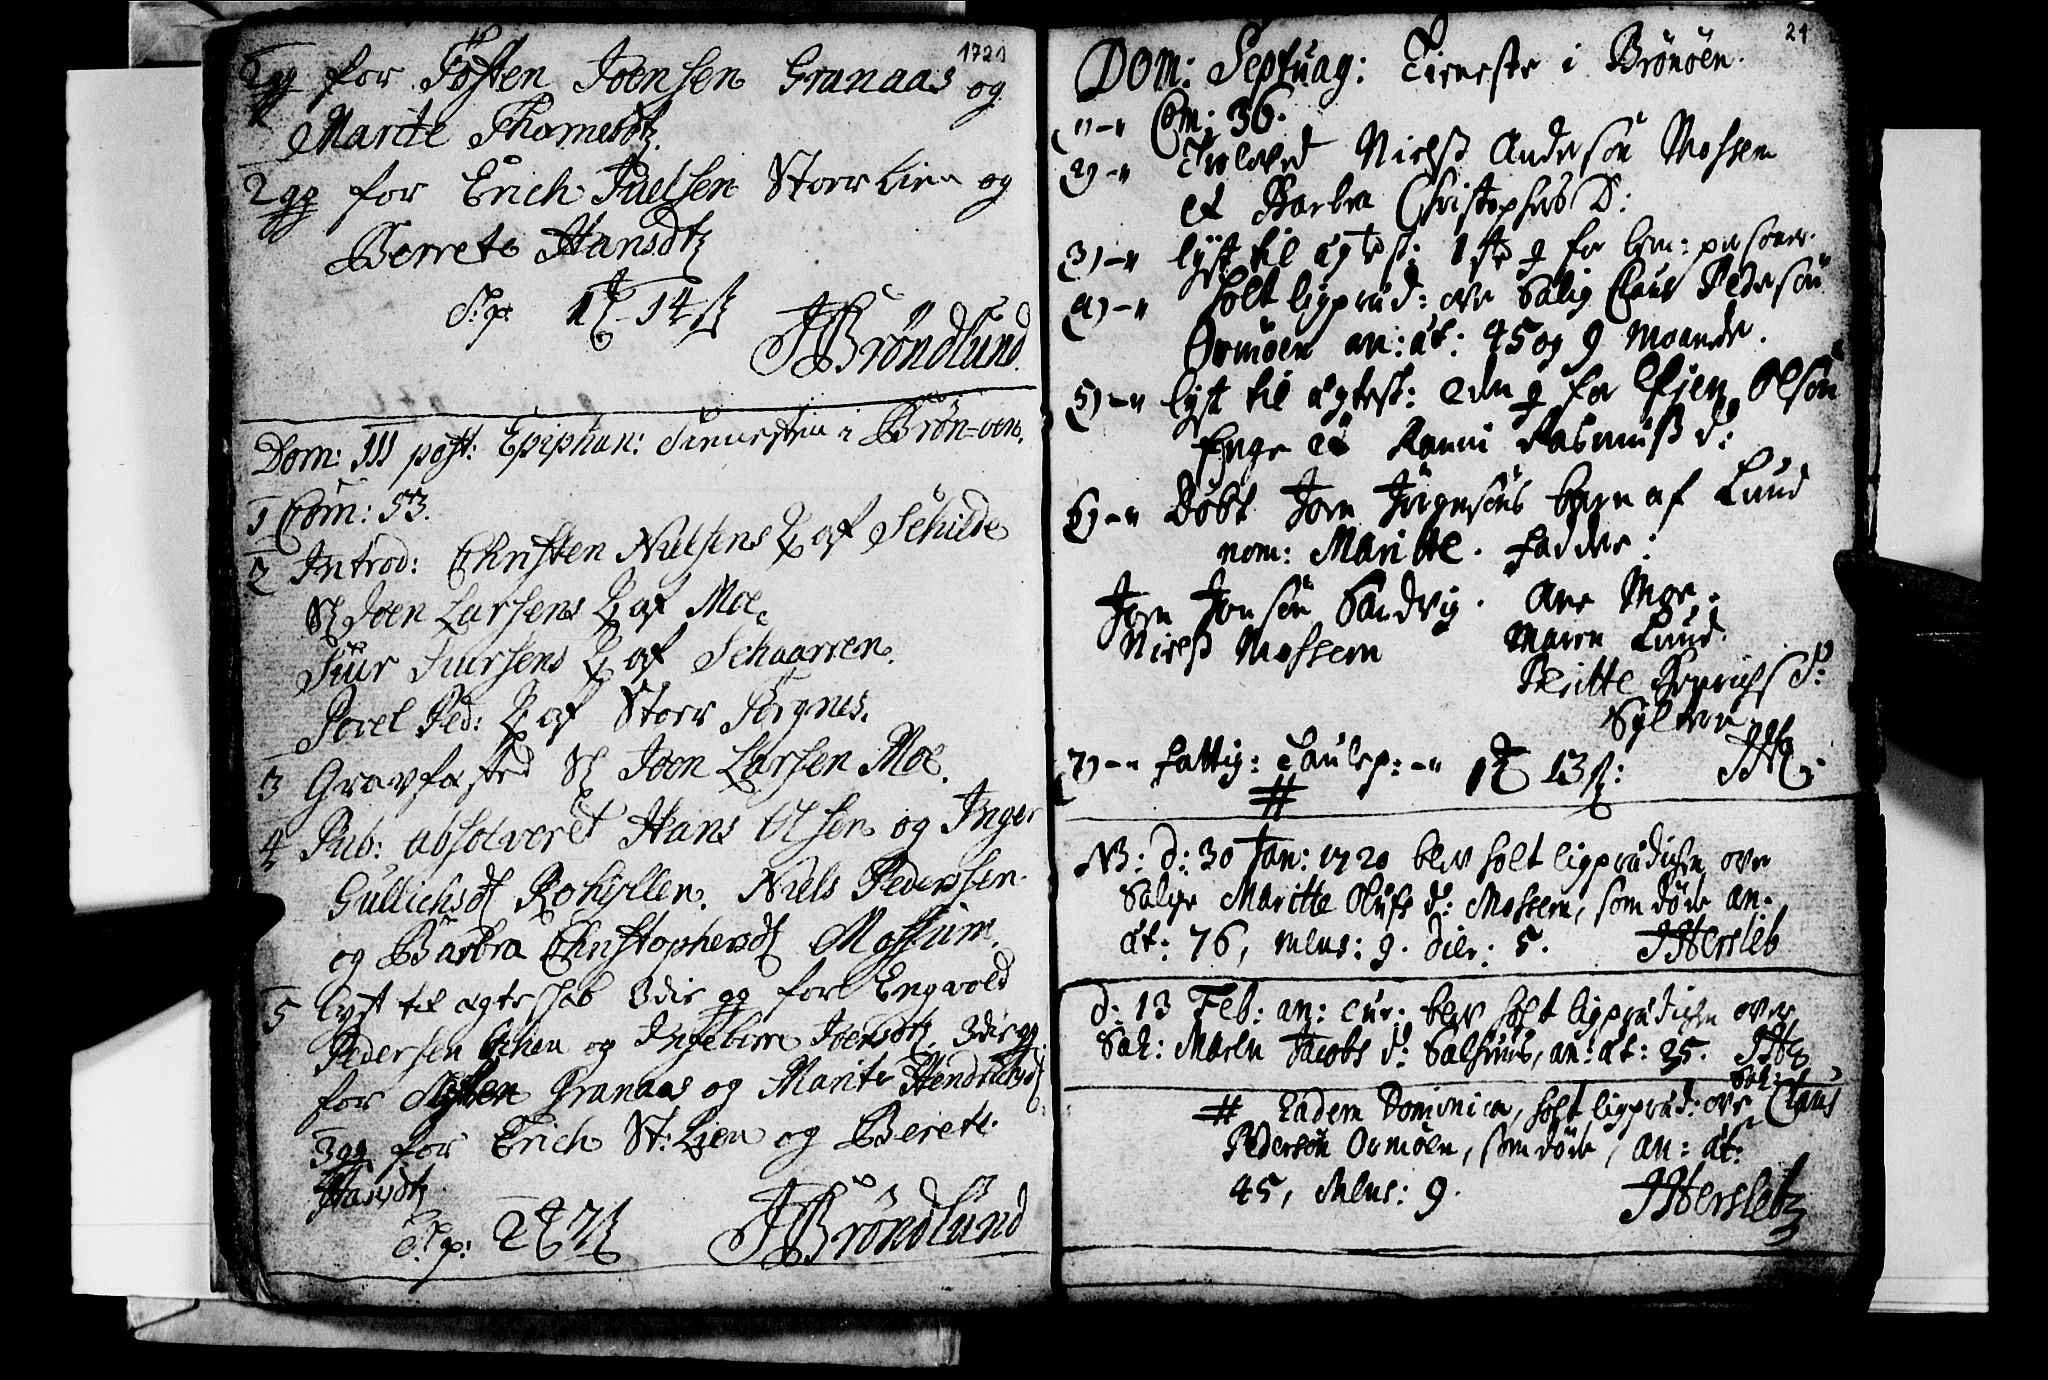 1721
2 gg for Tosten Joensen Granaas og
Marite Thomesdtz.
2 gg for Erich Juelsen Storrlien og
Berrete Hansdtz
T: p: 1 14 ß
JBrøndlund.
Dom: III post: Epiphan: Tienesten i Brön-öen.
1 Com: 53.
2 Introd: Christen Nielsens Q af Schilde
Sl Joen Larsens Q af Moe
Siur Siursens Q af Schaarren.
Povel Ped: Q af Storr Torgnes.
3 Gravfæsted Sl Joen Larsen Moe.
4 Pub: absolveret Hans Olsen og Inger
Gullichsdt Rohyllen. Niels Pedersen
og Barbra Christophersdt Mossum.
5 lyst til ægteskab 3die gg for Engvold
Pedersen og Ingebirre Joensdtz. 3die gg.
for Granaas og Marite Hendrichsdt
3 gg for Erich St: Lien og Berete
Hansdtz.
T: p: 2 7 ß JBrøndlund
21
DOM: Septuag: Tieneste i Brönöen.
1) -" Com: 36.
2) -" Troloved Nielß Andersön Mossem
et Barbra Christophers D:
3) -" lÿst til ægtesk: 1ste g for bem: personer.
4) -" holt ligpræd: ovr Salig Claus Pedersön
Ormöen an: æt: 45 og 9 Maaneder.
5) -" lÿst til ægtesk: 2den g for Elljen Olsön
Enge et Karni Rasmuß d:
6) -" Döbt Jorn Jörgensöns barn af Lund
nom: Maritte. Faddre:
Jorn Jonsön Sandvig. Ane Moe.
Nielß Mossem Maren Lund.
Beritte Henrichs D:
Sÿltern
7) -" Fattig: Taulep: -" 1 13 ß: JH.
#
NB: d: 30 Jan: 1720 blev holt ligprædichen ovr
Salige Maritte Olufs d: Mossem, som döde an.
æt: 76, mens: 9. dier: 5. JHersleb
d: 13 Feb: an: cur: blev holt ligprædichen over
Sal: Maren Jacobs d: Salhuus, an: æt: 25. JH
# Eadem Dominica, holt ligpræd: ovr Sal: Claus
Pedersön Ormöen, som döde, an: æt:
45, Mens: 9. JHersleb